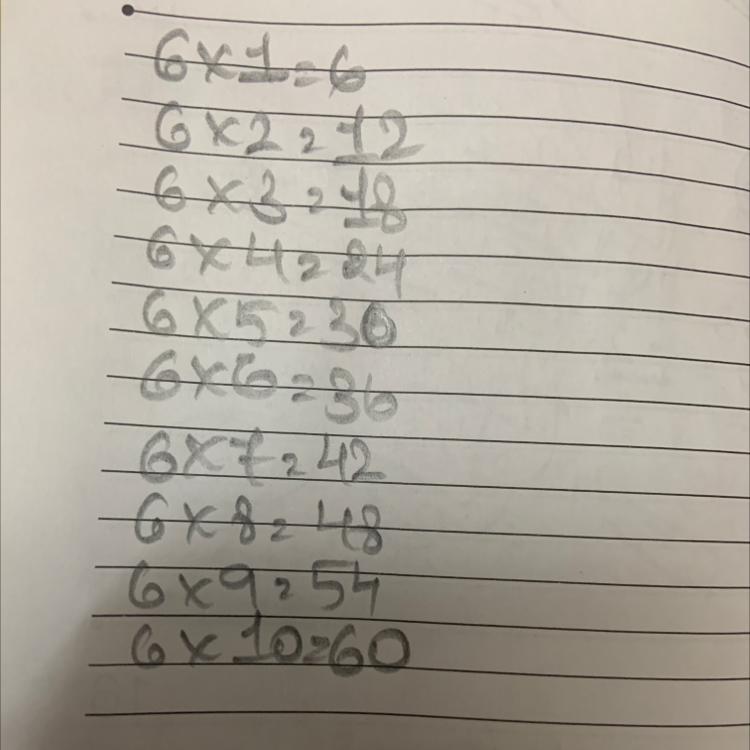 6×1=6
6×2=12
6×3=18
6×4=24
6×5=30
6×6=36
6×7=42
6×8=48
6×9=54
6×10=60